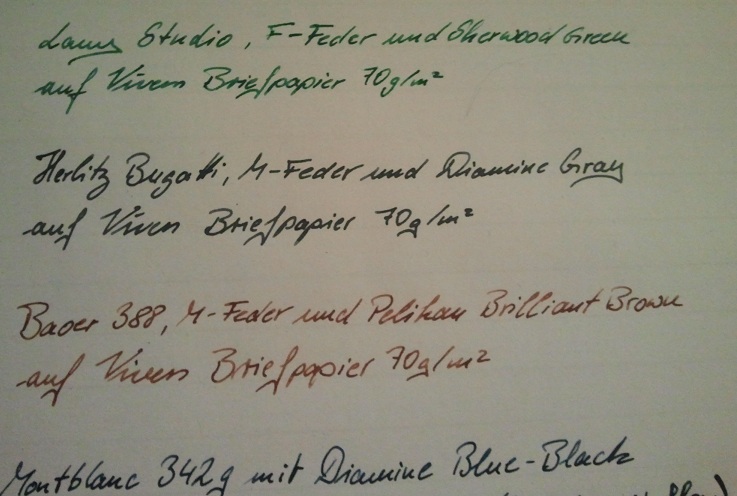 Lamy Studio, F-Feder und Sherwood Green
auf Vivers Briefpapier 70g/m²
Herlitz Bugatti, M-Feder und Diamine Gray
auf Vivers Briefpapier 70g/m²
Baoer 388, M-Feder und Pelikan Brilliant Brown
auf Vivers Briefpapier 70g/m²
Montblanc 342g mit Diamine Blue-Black